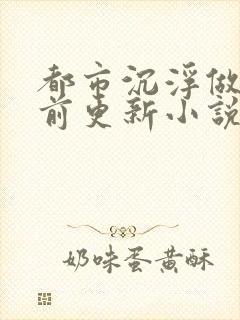 都市沉浮做
前更新小說
奶味蛋黄酥